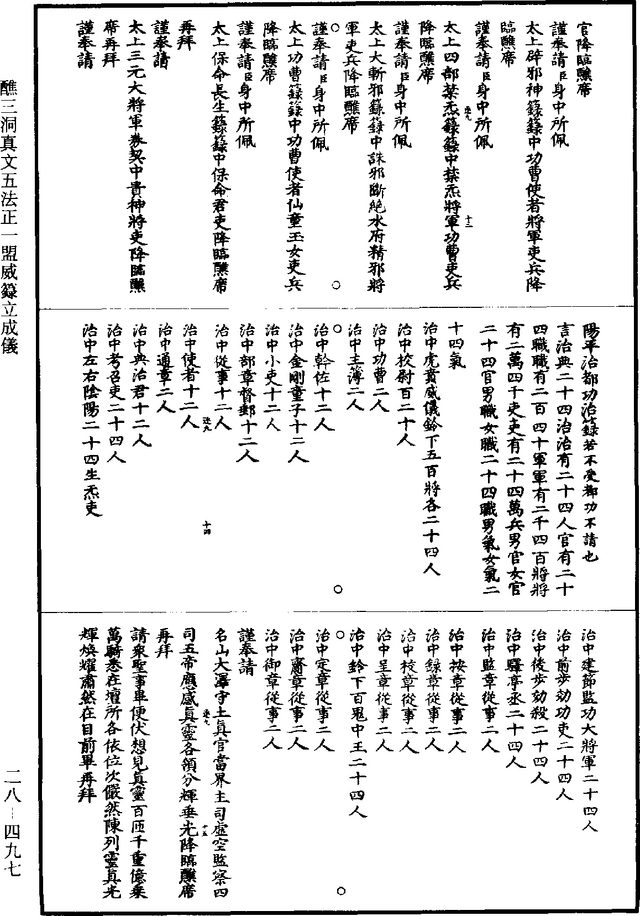 醮三洞真文五法正一盟威籙立成儀
官降臨醮席
謹奉請臣身中所佩
太上辟邪神籙籙中功曹使者將軍吏兵降
臨醮席
謹奉請臣身中所佩
太上四部禁炁籙籙中禁炁將軍功曹吏兵
降臨醮席
謹奉請臣身中所佩
太上大斬邪籙籙中誅邪斷絕水府精邪將
軍吏兵降臨醮席
謹奉請臣身中所佩
太上功曹籙籙中功曹使者仙童玉女吏兵
降臨醮席
謹奉請臣身中所佩
太上保命長生籙籙中保命君吏降臨醮席
再拜
謹奉請
太上三元大將軍券契中貴神將吏降臨醮
席再拜
謹奉請
陽平治都功治籙若不受都功不請也
言治典二十四治治有二十四人官有二十
四職職有二百四十軍軍有二千四百將將
有二萬四千吏吏有二十四萬兵男官女官
二十四官男職女職二十四職男氣女氣二
十四氣
治中虎賁威儀鈴下五百將各二十四人
治中校尉百二十人
治中功曹二人
治中主簿二人
治中幹佐十二人
治中金剛童子十二人
治中小吏十二人
治中部章督郵十二人
治中從事十二人
治中使者十二人
治中通章二人
治中典治君十二人
治中考召吏二十四人
治中左右陰陽二十四生炁吏
治中建節監功大將軍二十四人
治中前步効功吏二十四人
治中後步効殺二十四人
治中驛亭丞二十四人
治中監章從事二人
治中按章從事二人
治中錄章從事二人
治中校章從事二人
治中呈章從事二人
治中鈴下百鬼中王二十四人
治中定章從事二人
治中齎章從事二人
治中御章從事二人
謹奉請
名山大澤守土真官當界主司虛空監察四
司五帝願感真靈各領分輝垂光降臨醮席
再拜
請衆聖事畢便伏想見真靈百匝千重億乘
萬騎悉在壇所各依位次儼然陳列靈真光
輝煥耀肅然在目前畢再拜
二八—四九七